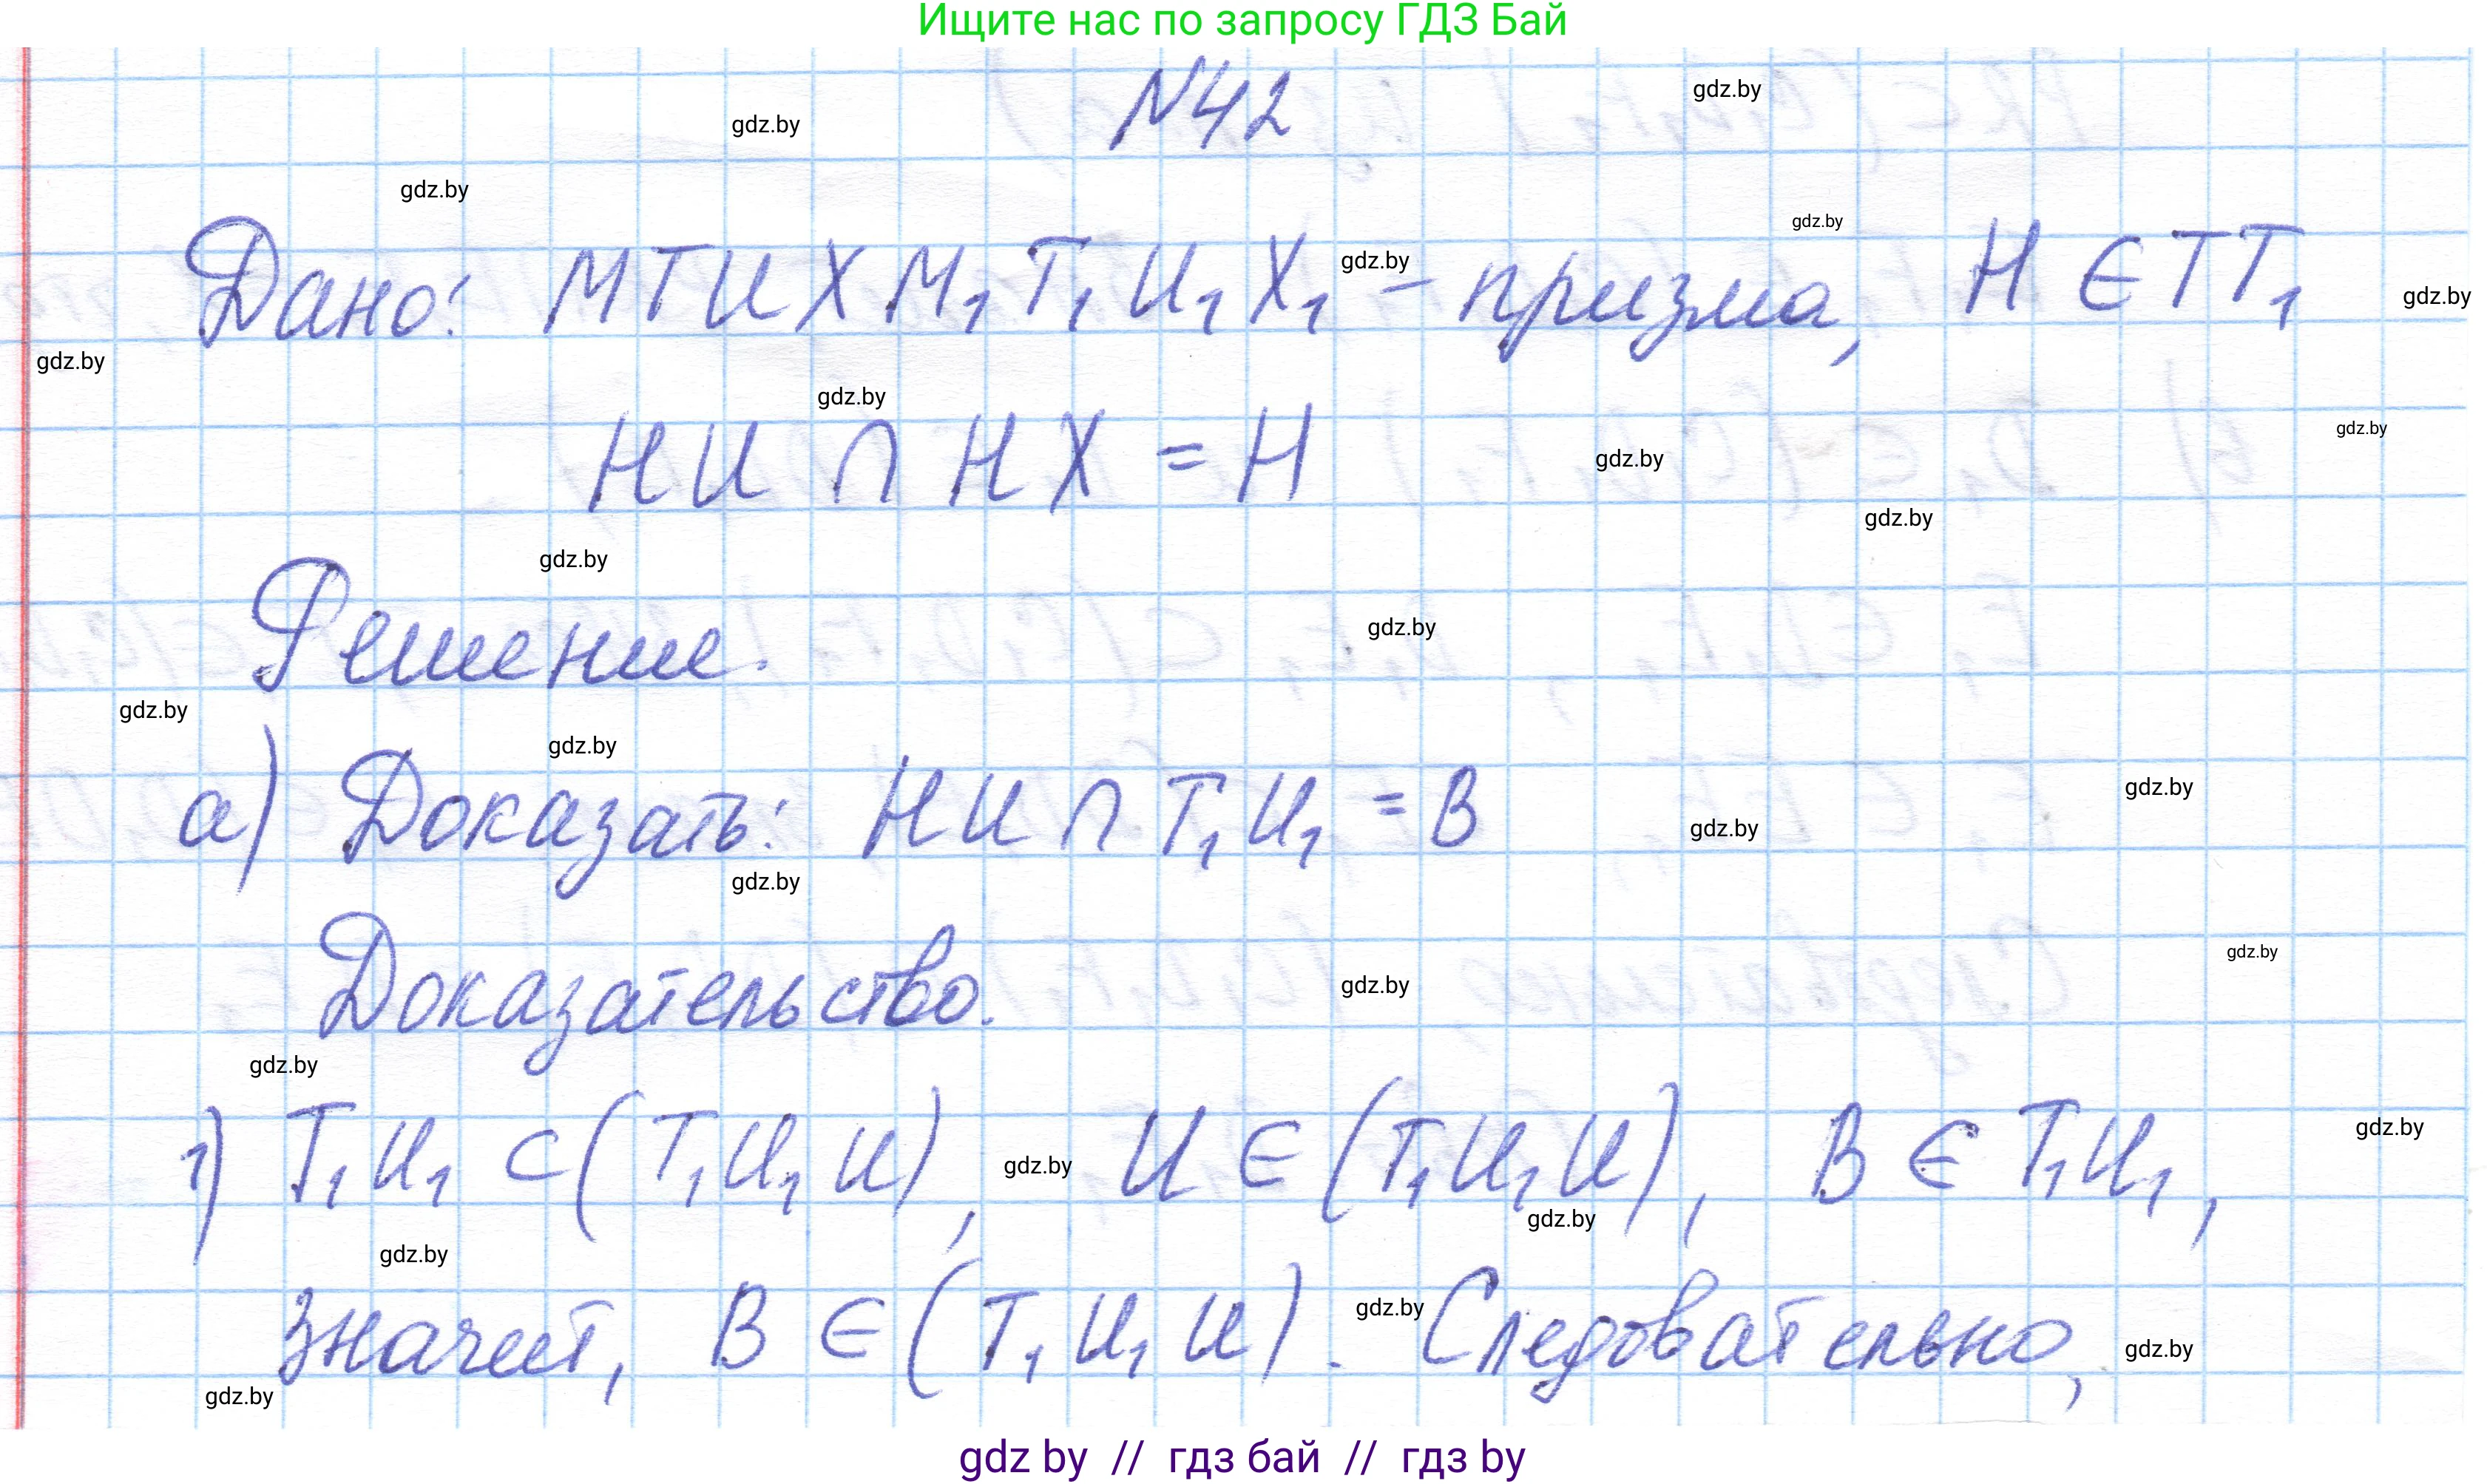 Ищите нас по запросу ГДЗ Бай
N42
gdz.by
gdz.by
gdz.by
gdz.by
Дано: МТИХМ₁Т₁И₁Х₁ - призма, Н ∈ ТТ₁
gdz.by
gdz.by
gdz.by
gdz.by
НИ ∩ НХ = Н
gdz.by
gdz.by
gdz.by
gdz.by
Решение.
gdz.by
gdz.by
gdz.by
а) Доказать: НИ ∩ Т₁И₁ = В
gdz.by
gdz.by
gdz.by
Доказательство.
gdz.by
gdz.by
gdz.by
1) Т₁И₁ ⊂ (Т₁И₁И), И ∈ (Т₁И₁И), В ∈ Т₁И₁,
gdz.by
gdz.by
gdz.by
gdz.by
значит, В ∈ (Т₁И₁И). Следовательно,
gdz.by
gdz.by
gdz.by
gdz by // гдз бай // гдз by